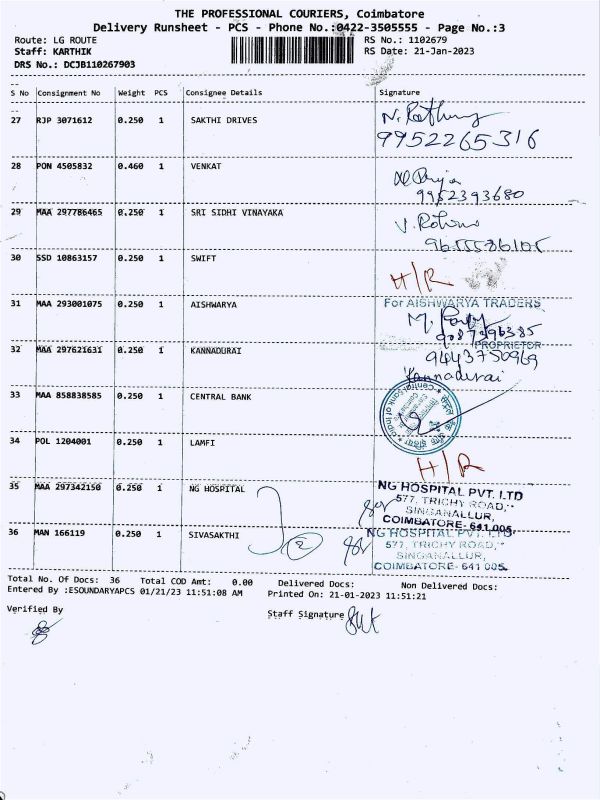 THE PROFESSIONAL COURIERS, Coimbatore
Delivery Runsheet - PCS - Phone No.:0422-3505555 - Page No.:3
Route: LG ROUTE RS No.: 1102679
Staff: KARTHIK RS Date: 21-Jan-2023
DRS No.: DCJB110267903
S No Consignment No Weight PCS Consignee Details Signature
27 RJP 3071612 0.250 1 SAKTHI DRIVES
9952265316
28 PON 4505832 0.460 1 VENKAT
9952393680
29 MAA 297786465 0.250 1 SRI SIDHI VINAYAKA
30 SSD 10863157 0.250 1 SWIFT H/R
31 MAA 293001075 0.250 1 AISHWARYA For AISHWARYA TRADERS
PROPRIETOR
32 MAA 297621631 0.250 1 KANNADURAI 9443750969
Kannadurai
33 MAA 858838585 0.250 1 CENTRAL BANK Central Bank of India
34 POL 1204001 0.250 1 LAMFI H/R
35 MAA 297342150 0.250 1 NG HOSPITAL NG HOSPITAL PVT. LTD
577, TRICHY ROAD,
SINGANALLUR,
COIMBATORE-641 005.
36 MAN 166119 0.250 1 SIVASAKTHI 2 NG HOSPITAL PVT. LTD.
577, TRICHY ROAD,
SINGANALLUR,
COIMBATORE-641 005.
Total No. Of Docs: 36 Total COD Amt: 0.00 Delivered Docs: Non Delivered Docs:
Entered By :ESOUNDARYAPCS 01/21/23 11:51:08 AM Printed On: 21-01-2023 11:51:21
Verified By Staff Signature